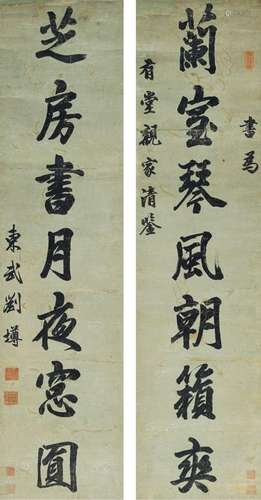 書為
蘭室琴風朝籟爽
有堂親家清鑒
芝房書月夜窓圓
東武劉墉